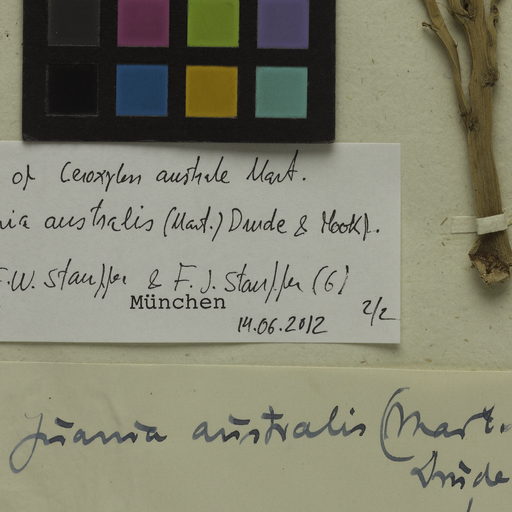 of Ceroxylon australe Mart.
nia australis (Mart.) Drude & Hook f.
F.W. Stauffer & F. J. Stauffer (G)
München
14.06.2012 2/2
Juania australis (Mart.
Drude